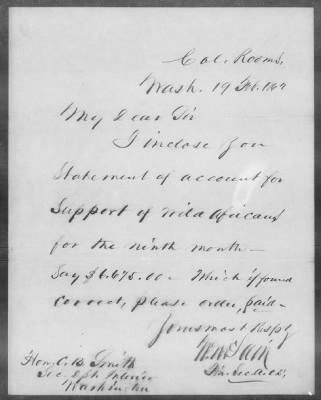 Col. Rooms,
Wash. 19 Feb. 1862
My Dear Sir
I inclose you
Statement of account for
Support of wild Africans
for the ninth month —
Say $6.675.00 — Which if found
correct, please order, paid —
Yours most Resply
W McLain
Fin. Sec. A.C.S.
Hon. C. B. Smith
Sec. of the Interior
Washington